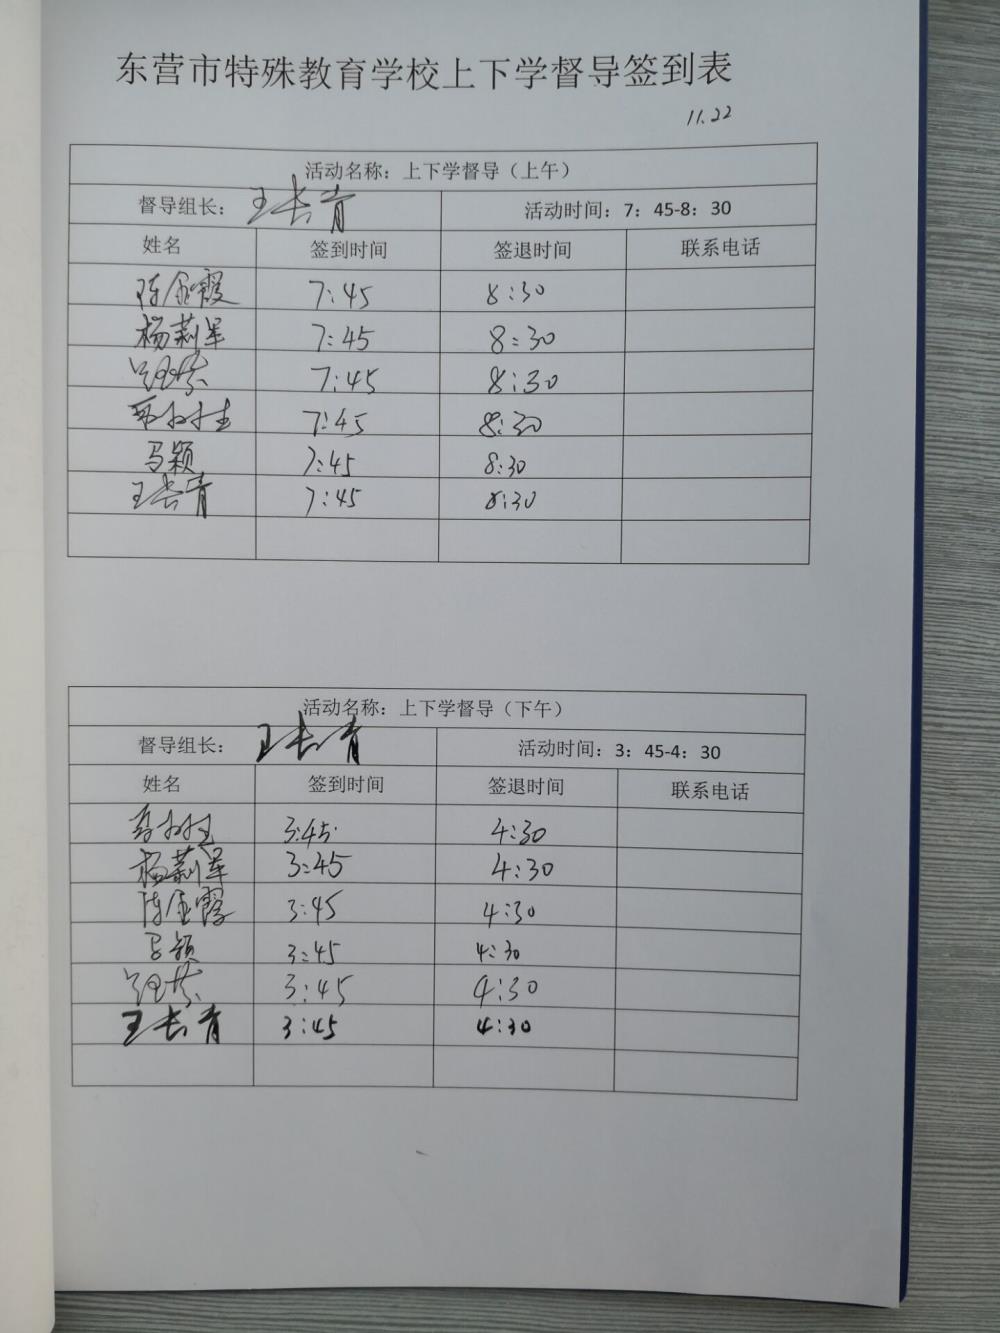 东营市特殊教育学校上下学督导签到表
11.22
活动名称：上下学督导（上午）
督导组长： 王长青 活动时间：7：45-8：30
姓名 签到时间 签退时间 联系电话
陈金霞 7:45 8:30
杨莉军 7:45 8:30
7:45 8:30
7:45 8:30
马颖 7:45 8:30
王长青 7:45 8:30
活动名称：上下学督导（下午）
督导组长： 王长青 活动时间：3：45-4：30
姓名 签到时间 签退时间 联系电话
3:45 4:30
杨莉军 3:45 4:30
陈金霞 3:45 4:30
马颖 3:45 4:30
3:45 4:30
王长青 3:45 4:30